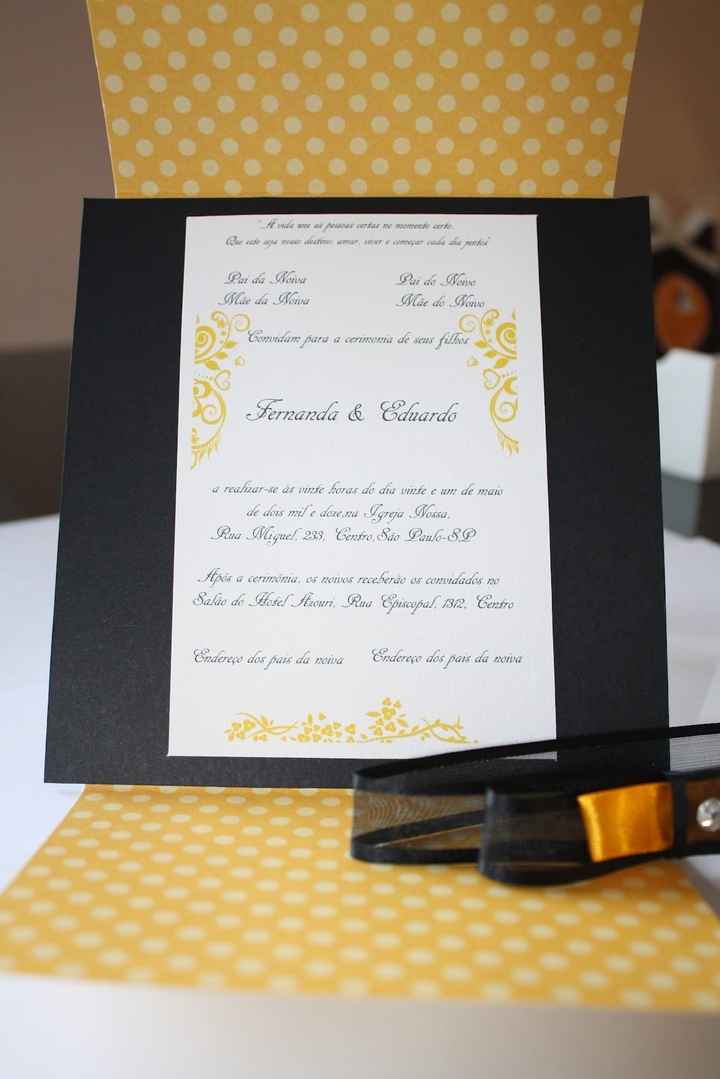 "A vida une as pessoas certas no momento certo.
Que este seja nosso destino: amar, viver e começar cada dia juntos"
Pai da Noiva
Pai do Noivo
Mãe da Noiva
Mãe do Noivo
Convidam para a cerimonia de seus filhos
Fernanda & Eduardo
a realizar-se às vinte horas do dia vinte e um de maio
de dois mil e doze,na Igreja Nossa,
Rua Miguel, 233, Centro,São Paulo-SP
Após a cerimônia, os noivos receberão os convidados no
Salão do Hotel Azouri, Rua Episcopal, 1312, Centro
Endereço dos pais da noiva
Endereço dos pais da noiva